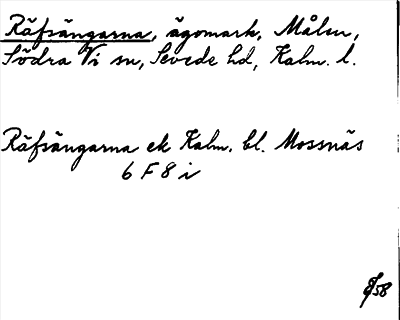 Räfsängarna, ägomark, Målen,
Södra Vi sn, Sevede hd, Kalm. l.
Räfsängarna ek Kalm. bl. Mossnäs
6 F 8 i